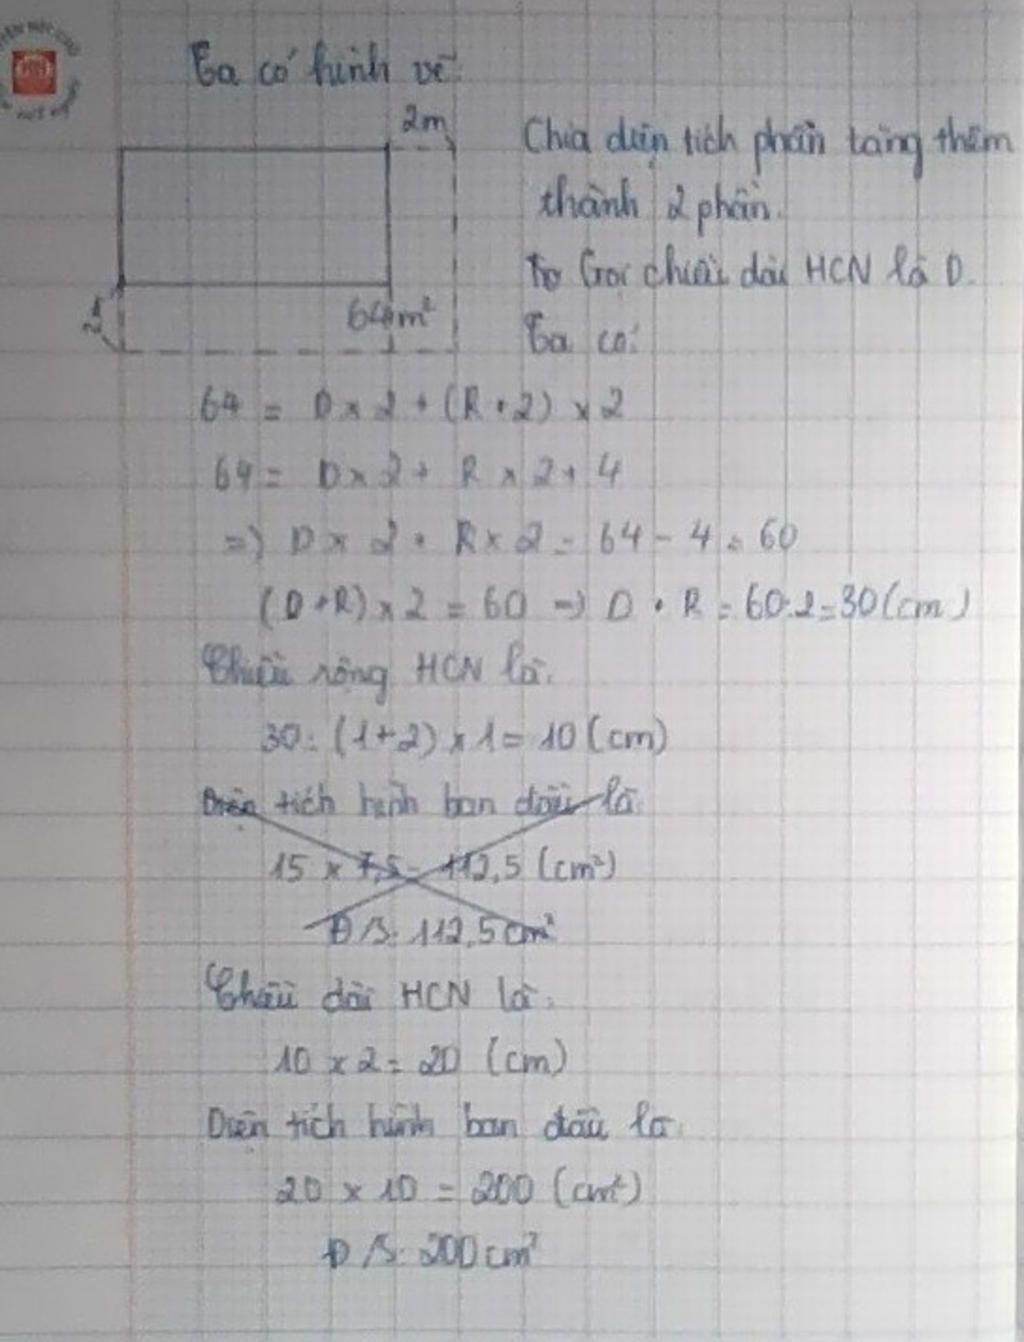 Ta có hình vẽ:
2m
Chia diện tích phần tăng thêm
thành 2 phần.
Gọi chiều dài HCN là D.
64m²
Ta có:
64 = D × 2 + (R + 2) × 2
64 = D × 2 + R × 2 + 4
=> D × 2 + R × 2 = 64 - 4 = 60
(D + R) × 2 = 60 => D + R = 60:2=30(cm)
Chiều rộng HCN là:
30: (1+2) × 1 = 10 (cm)
Diện tích hình ban đầu là:
15 × 7,5 = 112,5 (cm²)
Đ/S: 112,5cm²
Chiều dài HCN là:
10 × 2 = 20 (cm)
Diện tích hình ban đầu là:
20 × 10 = 200 (cm²)
Đ/S: 200cm²